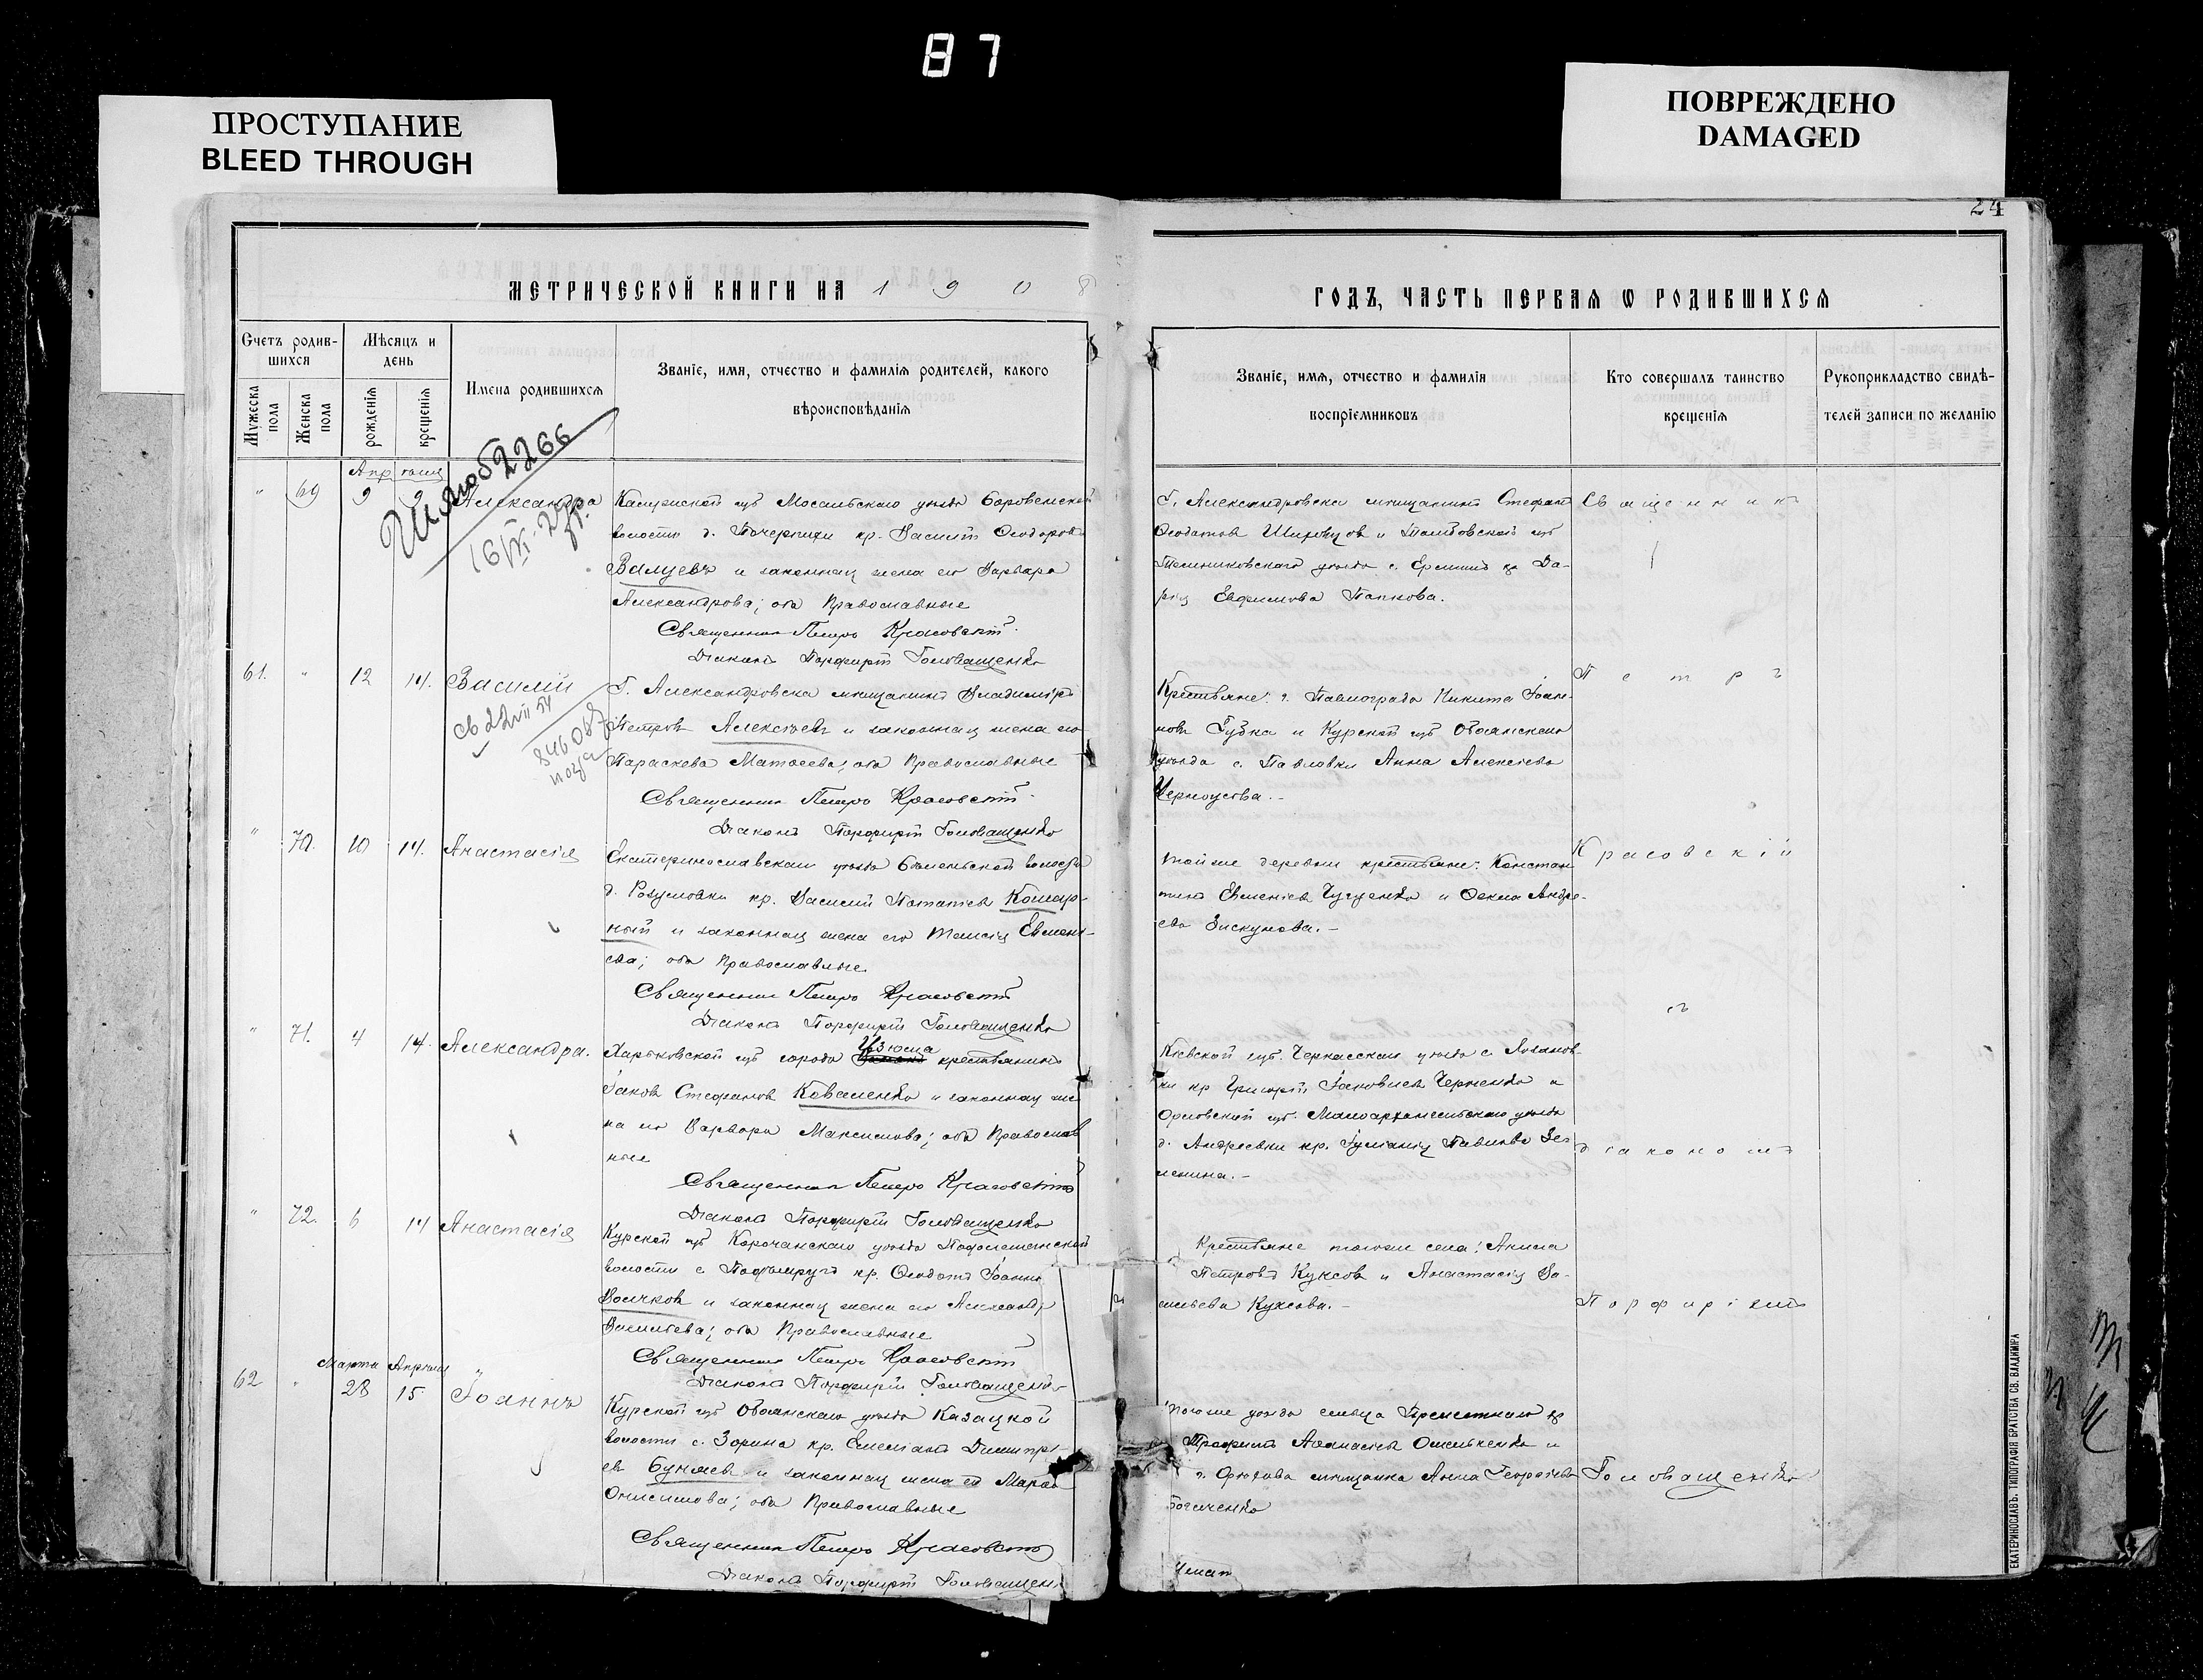 87
ПРОСТУПАНИЕ
BLEED THROUGH
ПОВРЕЖДЕНО
DAMAGED
24
МЕТРИЧЕСКОЙ КНИГИ НА 1908
ГОДЪ, ЧАСТЬ ПЕРВАЯ Ѡ РОДИВШИХСЯ
Счетъ родив-
шихся
Мѣсяцъ и
день
Мужеска
пола
Женска
пола
рожденія
крещенія
Имена родившихся
Званіе, имя, отчество и фамилія родителей, какого
вѣроисповѣданія
Званіе, имя, отчество и фамилія
воспріемниковъ
Кто совершалъ таинство
крещенія
Рукоприкладство свидѣ-
телей записи по желанію
Апрѣля
" 69 9 9 Александра
2266
Калужской губ Мосальскаго уѣзда
волости д. кр. Василій Ѳеодоровъ
и законная жена его Варвара
Александрова; оба Православные
Священникъ Петръ Красовскій
Діаконъ Порфирій Головащенко
Г. Александровска мѣщанинъ Стефанъ
Ѳеодотовъ и Тамбовской губ
Темниковскаго уѣзда с. кр Да-
рія Евфимова Папкова.
Священникъ
61. " 12 14. Василій
св 22 VII 54
846087
Г. Александровска мѣщанинъ Владиміръ
Петровъ Алексѣевъ и законная жена его
Параскева Матѳеева; оба Православные
Священникъ Петръ Красовскій
Діаконъ Порфирій Головащенко
Крестьяне: г. Павлограда Никита Іоан-
новъ Губка и Курской губ Обоянскаго
уѣзда с. Павловки Анна Алексѣева
Черноусова.-
Петръ
" 70. 10 14. Анастасія
Екатеринославскаго уѣзда волости
д. Розумовки кр. Василій Потапіевъ Комар-
ный и законная жена его Таисія Евмені-
ева; оба Православные
Священникъ Петръ Красовскій
Діаконъ Порфирій Головащенко
той же деревни крестьяне: Констан-
тинъ Евменіевъ и Ѳекла Андре-
ева Пискунова.-
Красовскій
" 71. 4 14. Александра.
Харьковской губ города Изюма крестьянинъ
Іаковъ Стефановъ Коваленко и законная же-
на его Варвара Максимова; оба Православ
ные
Священникъ Петръ Красовскій
Діаконъ Порфирій Головащенко
Кіевской губ. Черкасскаго уѣзда с.
кр Григорій Іаковлевъ Черненко и
Орловской губ. Малоархангельскаго уѣзда
д. Андреевки кр. Іуліанія Павлова Зе-
ленина.-
съ
діакономъ
" 72. 6 14 Анастасія
Курской губ Корочанскаго уѣзда
волости с. кр. Ѳеодотъ Іоанновъ
Волчковъ и законная жена его Александра
Васильева; оба Православные
Священникъ Петръ Красовскій
Діаконъ Порфирій Головащенко
Крестьяне того же села: Акимъ
Петровъ Куксовъ и Анастасія Ва-
сильева Куксова.-
Порфиріемъ
Марта Апрѣля
62 " 28 15. Іоаннъ
Курской губ Обоянскаго уѣзда Казацкой
волости с. Зорина кр. Емеліанъ Димитрі-
евъ Буняевъ и законная жена его Марѳа
Онисимова; оба Православные
Священникъ Петръ Красовскій
Діаконъ Порфирій Головащенко
того же уѣзда сельца кр
Трофимъ Аѳанасіевъ Омельченко и
г. Орѣхова мѣщанка Анна Георгіева
Головащенко
ЕКАТЕРИНОСЛАВЪ. ТИПОГРАФІЯ БРАТСТВА СВ. ВЛАДИМІРА